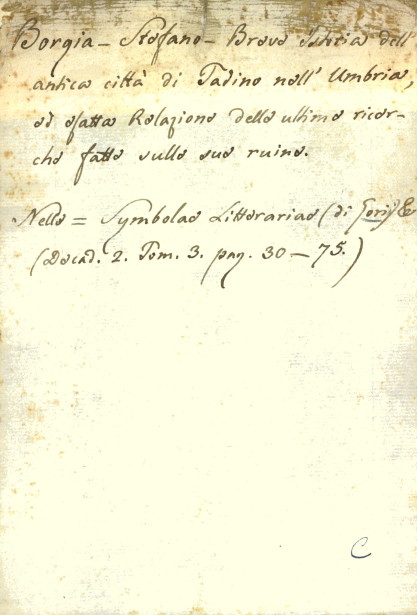 Borgia – Stefano – Breve Istoria dell'
antica città di Tadino nell' Umbria,
ed esatta Relazione delle ultime ricer-
che fatte sulle sue ruine.
Nelle = Symbolae Litterariae (di Gori)
(Decad. 2. Tom. 3. pag. 30 – 75.)
C